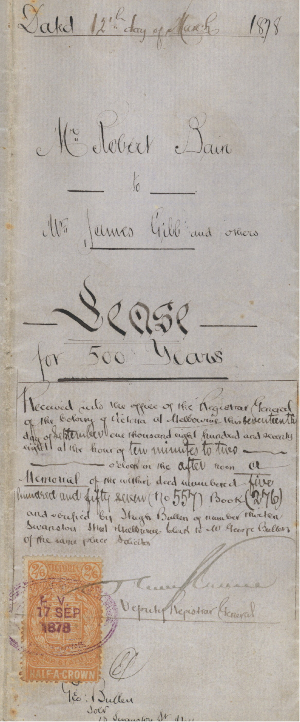 Dated 12th day of March 1878
Mr. Robert Bain
to
Mr. James Gibb and others
Lease
for 500 Years
Received into the office of the Registrar General
of the Colony of Victoria at Melbourne this seventeenth
day of September one thousand eight hundred and seventy
eight at the hour of ten minutes to two
o'clock in the after noon a
Memorial of the within deed numbered five
hundred and fifty seven (No 557) Book (276)
and verified by Hugh Bullen of number thirteen
Swanston Street Melbourne Clerk to Mr George Bullen
of the same place Solicitor
Deputy Registrar General
17 SEP
1878
HALF-A-CROWN
Geo: Bullen
Solr
13 Swanston St